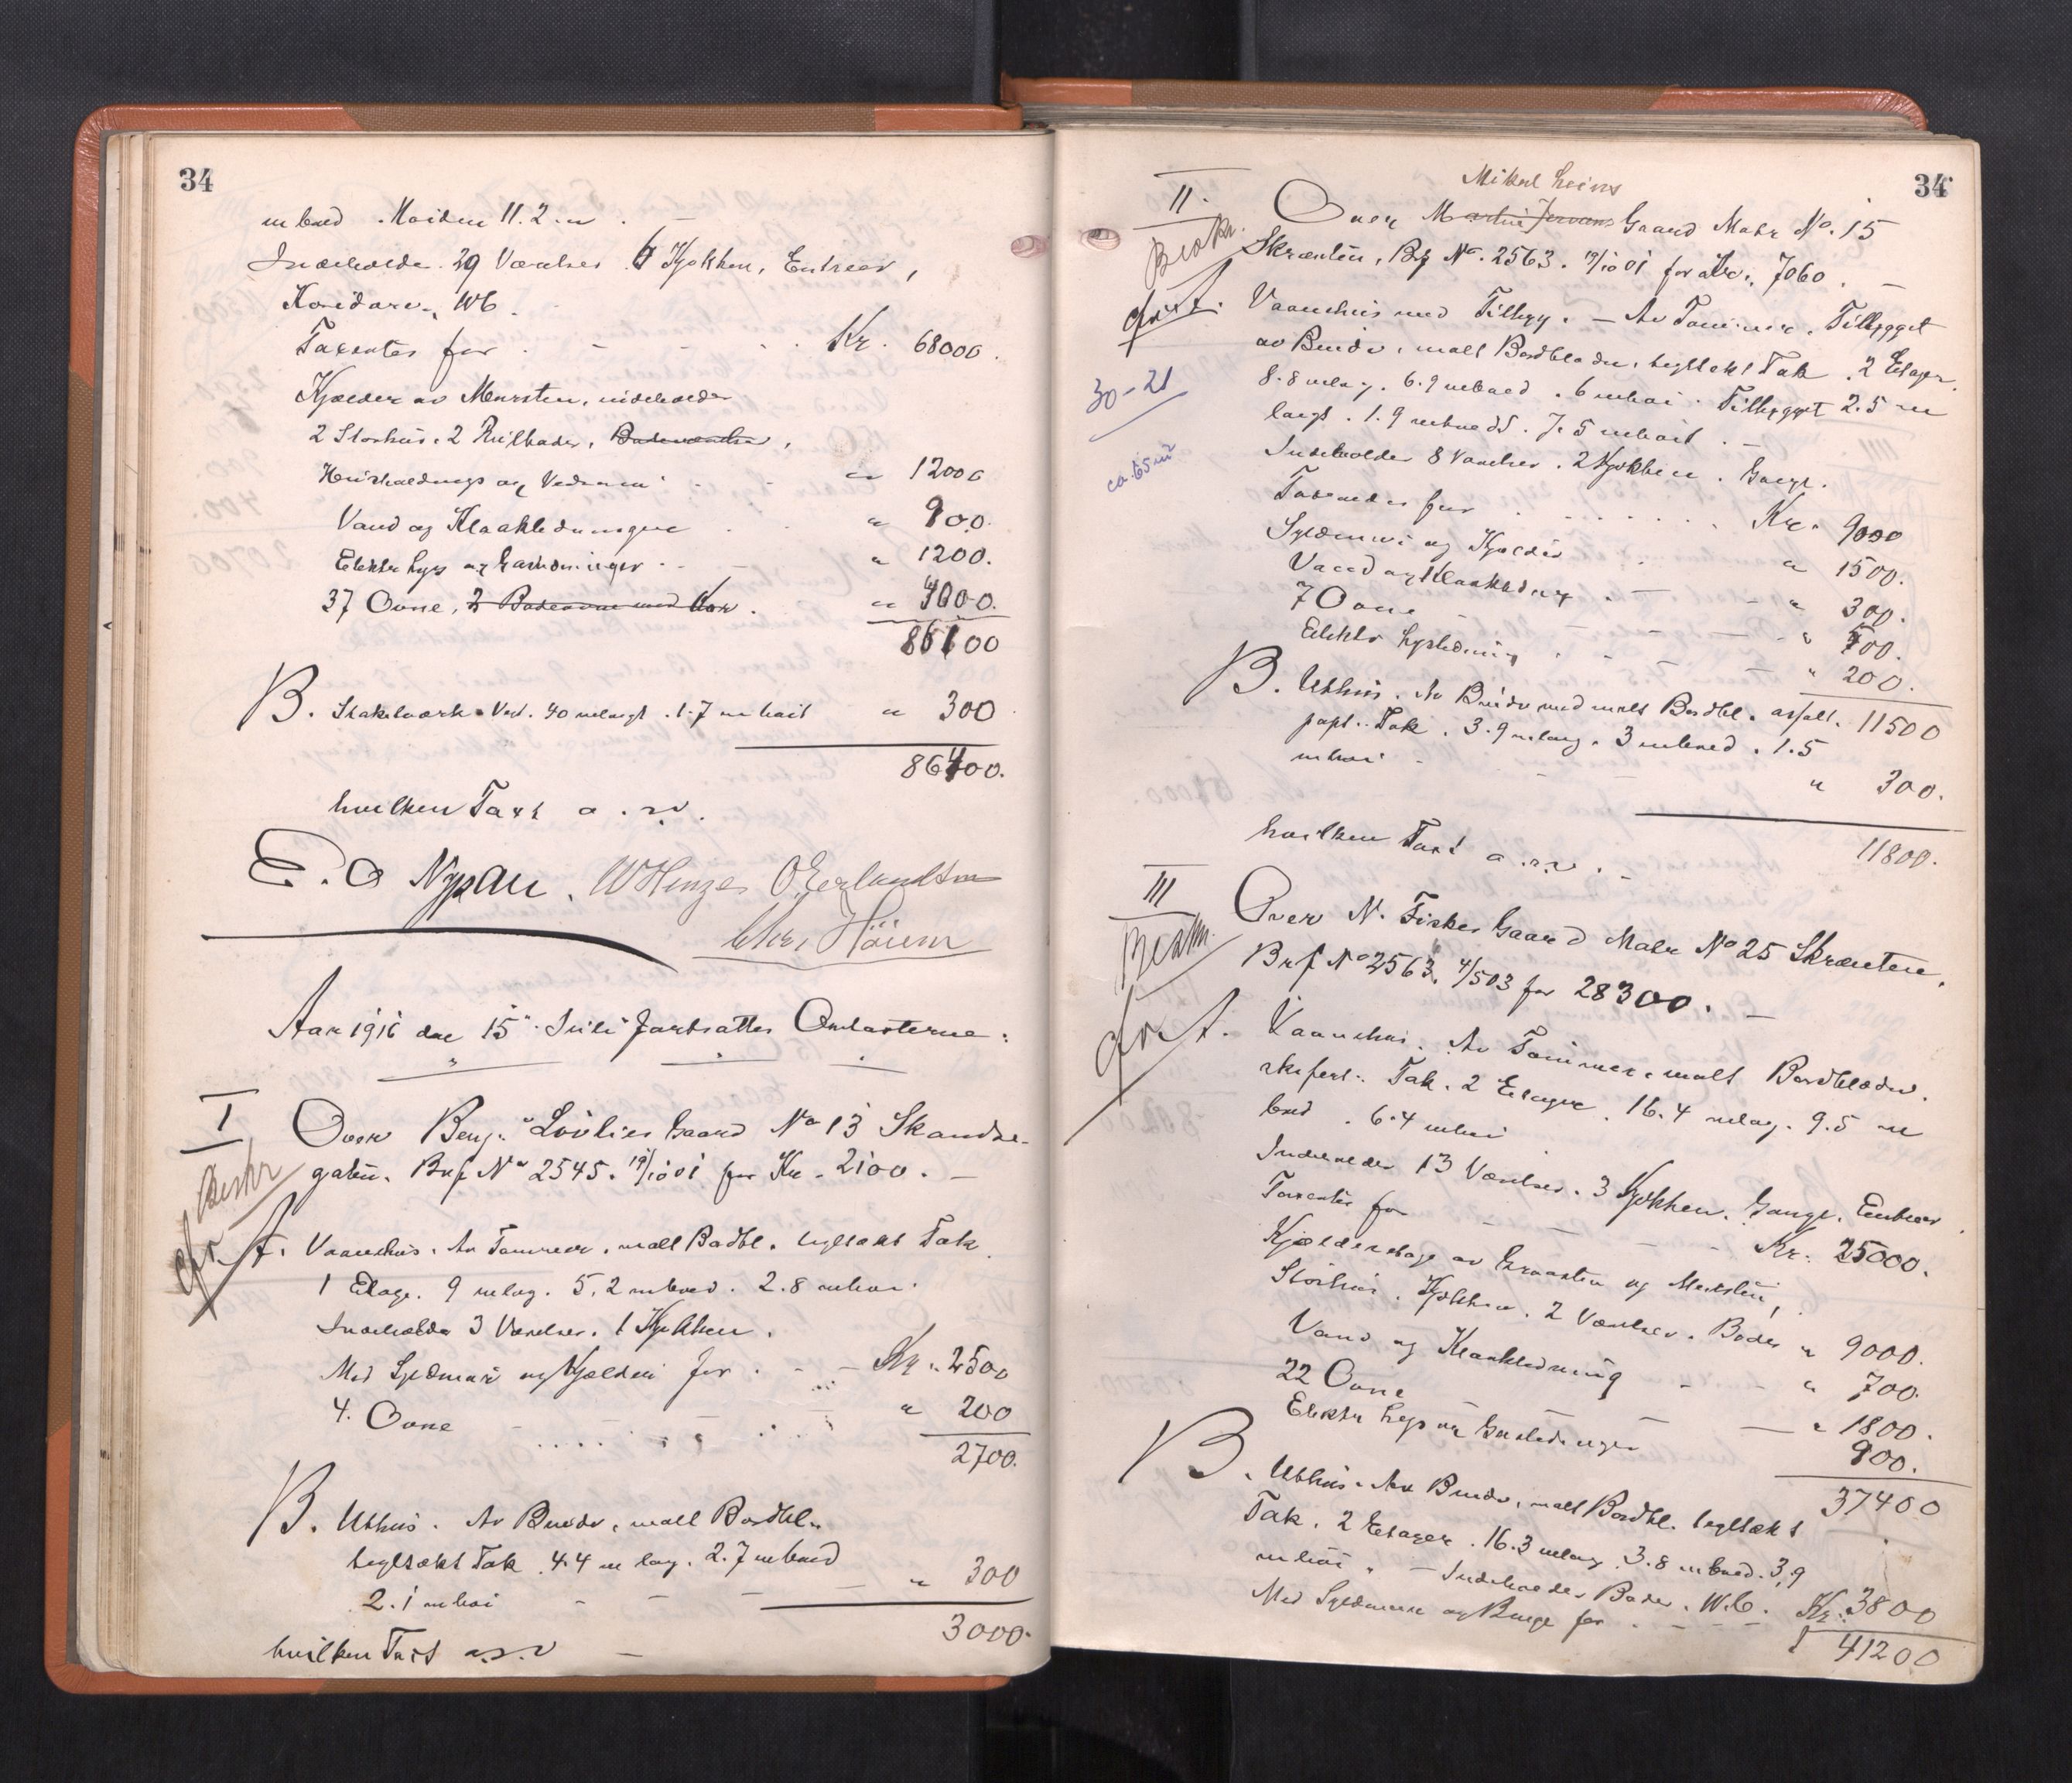 34
m bred. Høiden 11.2 m.
Indeholder 29 Værelser 6 Kjøkken, Entreer,
Koridorer, WC.
Taxeates for Kr. 68000.
Kjælder av Mursten, indeholder
2 Storhus, 2 Rulleboder, Badeværelse,
Husholdnings og Vedrum " 12000
Vand og Kloakledninger " 900.
Elektr Lys og Gasledninger " 1200.
37 Ovne, 2 Badeovne med Kar. " 4000.
86100
B. Stakitværk Ved. 40 m langt. 1.7 m høit " 300
86400.
hvilken Taxt a.s.v.
E. O Nypan. W Hinze O Erlandsen
Chr. Høiem
Aar 1916 den 15. Juli fortsattes Omtaxterne:
I
Over Benj. Løvlies Gaard No 13 Skandse-
gaten. Brf No 2545. 19/10 01 for Kr. 2100.
Beskr
A. Vaanehus. Av Tømmer, malt Bordkl. teglsækt Tak
1 Etage. 9 m lag. 5.2 m bred. 2.8 m høi.
Indeholder 3 Værelser. 1 Kjøkken.
Med Syldmur og Kjælder for Kr. 2500
4. Ovne " 200
2700.
B. Uthus. Av Bindv, malt Bordkl.
teglsækt Tak. 4.4 m lag. 2.7 m bred
2.1 m høi " 300
3000.
hvilken Taxt a.s.v
34
Mikal
II.
Over Martin Gaard Matr No. 15
Beskr.
Skrænten, Brf No. 2563. 19/10 01 for Kr. 7060.
A. Vaanehus med Tilbyg. Av Tømmer. Tilbygget
av Bindv, malt Bordklædn, teglsækt Tak. 2 Etager.
30-21
8.8 m lag. 6.9 m bred. 6 m høi. Tilbygget 2.5 m
langt. 1.9 m bredt. 5 m høit.
ca. 65 m²
Indeholder 8 Værelser. 2 Kjøkken. Gange.
Taxeredes for Kr. 9000
Syldmur og Kjælder " 1500.
Vand og Kloakledning " 300.
7 Ovne " 500.
Elektr Lysledning " 200.
11500
B. Uthus. Av Bindv med malt Bordkl. asfalt.
papt. Tak. 3.9 m lang. 3 m bred. 1.5
m høi " 300.
11800.
hvilken Taxt a.s.v.
III
Over N. Fiskes Gaard Matr No 25 Skrænten.
Beskr.
Brf No 2563. 4/5 03 for 28300.
A. Vaanehus. Av Tømmer, malt Bordklædn.
skifert. Tak. 2 Etager. 16.4 m lag. 9.5 m
bred. 6.4 m høi
Indeholder 13 Værelser. 3 Kjøkken. Gange. Entreer.
Taxeates for Kr. 25000.
Kjælderetage av Graasten og Mursten,
Storhus. Kjøkken. 2 Værelser. Boder " 9000.
Vand og Kloakledning " 700.
22 Ovne " 1800.
Elektr Lys og Gasledninger 900.
37400
B. Uthus. Av Bindv, malt Bordkl. teglsækt
Tak. 2 Etager. 16.3 m lang. 3.8 m bred. 3,9
m høi. Indeholder Boder. W.C.
Med Syldmur og Binge for Kr. 3800
41200